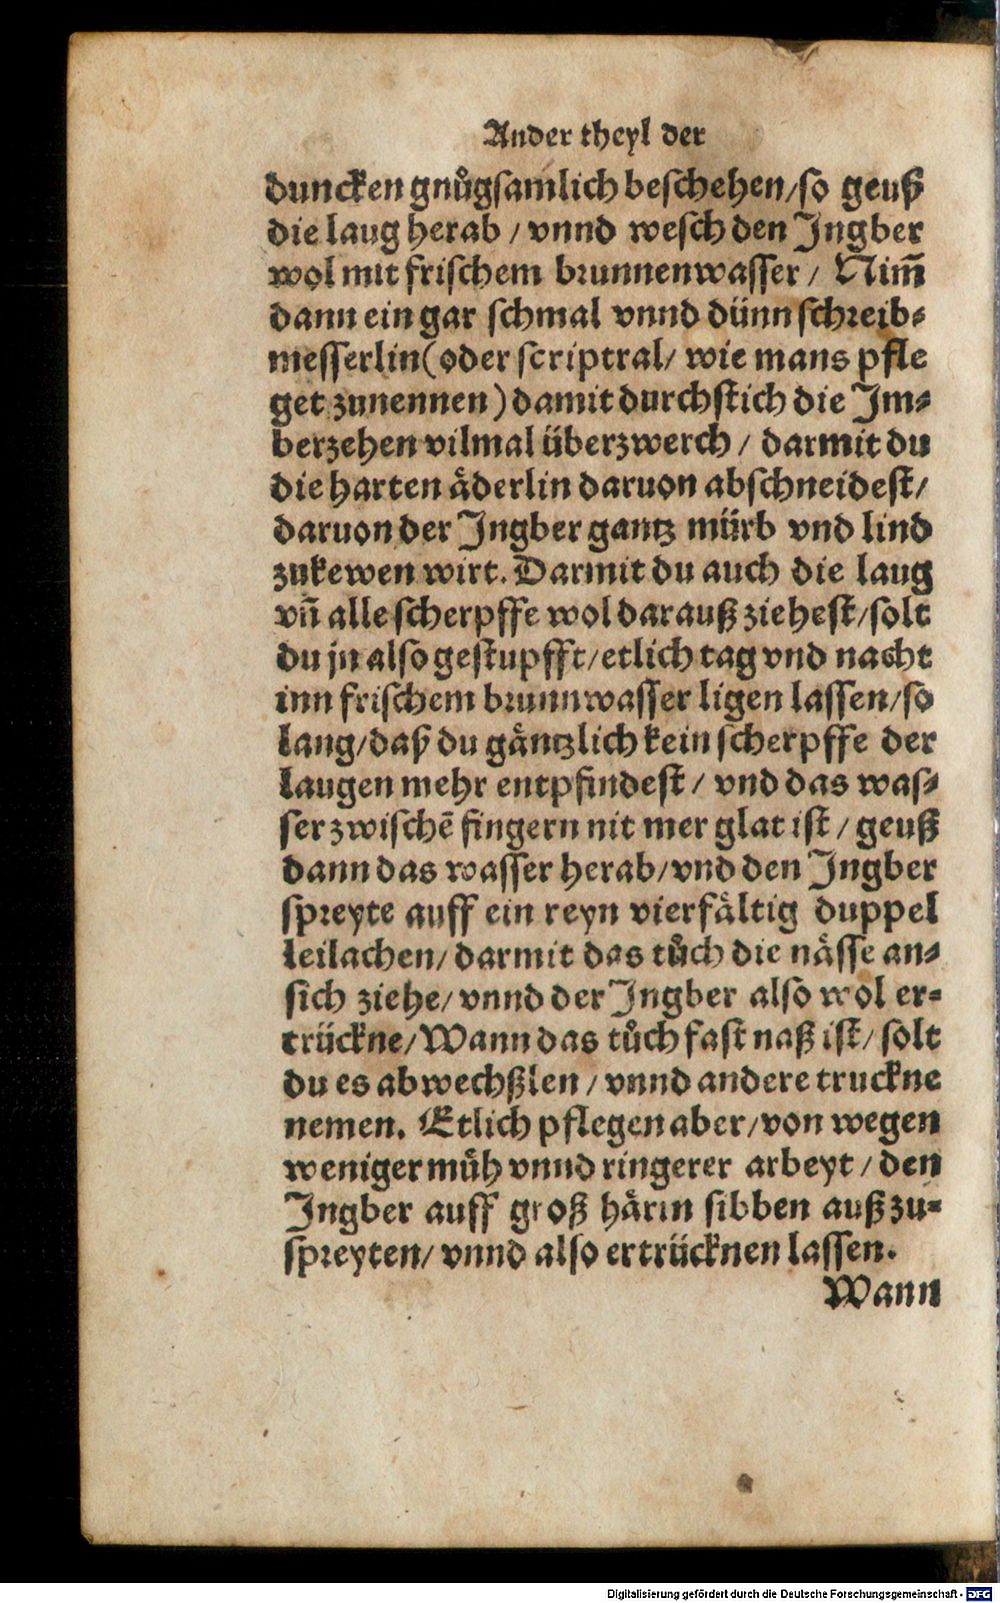 Ander theyl der
duncken gnůgsamlich beschehen/so geuß
die laug herab / vnnd wesch den Ingber
wol mit frischem brunnenwasser / Nim̃
dann ein gar schmal vnnd dünn schreib⸗
messerlin (oder scriptral/ wie mans pfle
get zunennen) damit durchstich die Im⸗
berzehen vilmal überzwerch / darmit du
die harten aͤderlin daruon abschneidest/
daruon der Ingber gantz mürb vnd lind
zukewen wirt. Darmit du auch die laug
vn̄ alle scherpffe wol darauß ziehest/solt
du jn also gestupfft/etlich tag vnd nacht
inn frischem brunnwasser ligen lassen/so
lang/daß du gaͤntzlich kein scherpffe der
laugen mehr entpfindest / vnd das was⸗
ser zwischē fingern nit mer glat ist / geuß
dann das wasser herab/vnd den Ingber
spreyte auff ein reyn vierfaͤltig duppel
leilachen/ darmit das tůch die naͤsse an⸗
sich ziehe/ vnnd der Ingber also wol er⸗
trückne/ Wann das tůch fast naß ist/ solt
du es abwechßlen / vnnd andere truckne
nemen. Etlich pflegen aber/von wegen
weniger müh vnnd ringerer arbeyt / den
Ingber auff groß haͤrin sibben außzu⸗
spreyten/ vnnd also ertrücknen lassen.
Wann
Digitalisierung gefördert durch die Deutsche Forschungsgemeinschaft - DFG